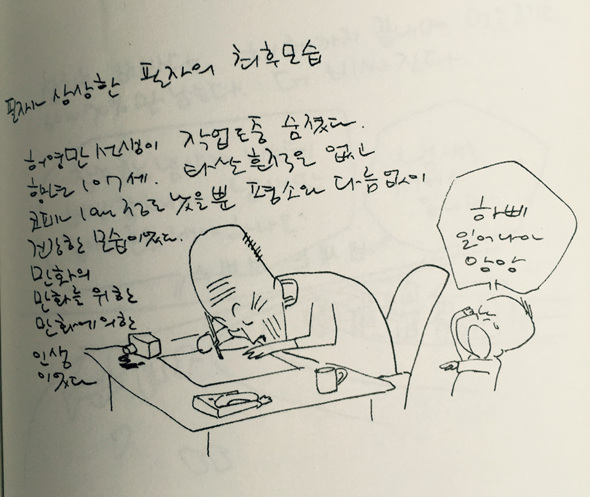 필자가 상상한 필자의 최후모습
허영만 선생이 작업도중 숨졌다.
향년 107세. 타살흔적은 없고
코피가 1cm 정도 났을뿐 평소와 다름없이
건강한 모습이었다.
만화의
만화를 위한
만화에의한
인생
이었다
하삐
일어나아
앙앙